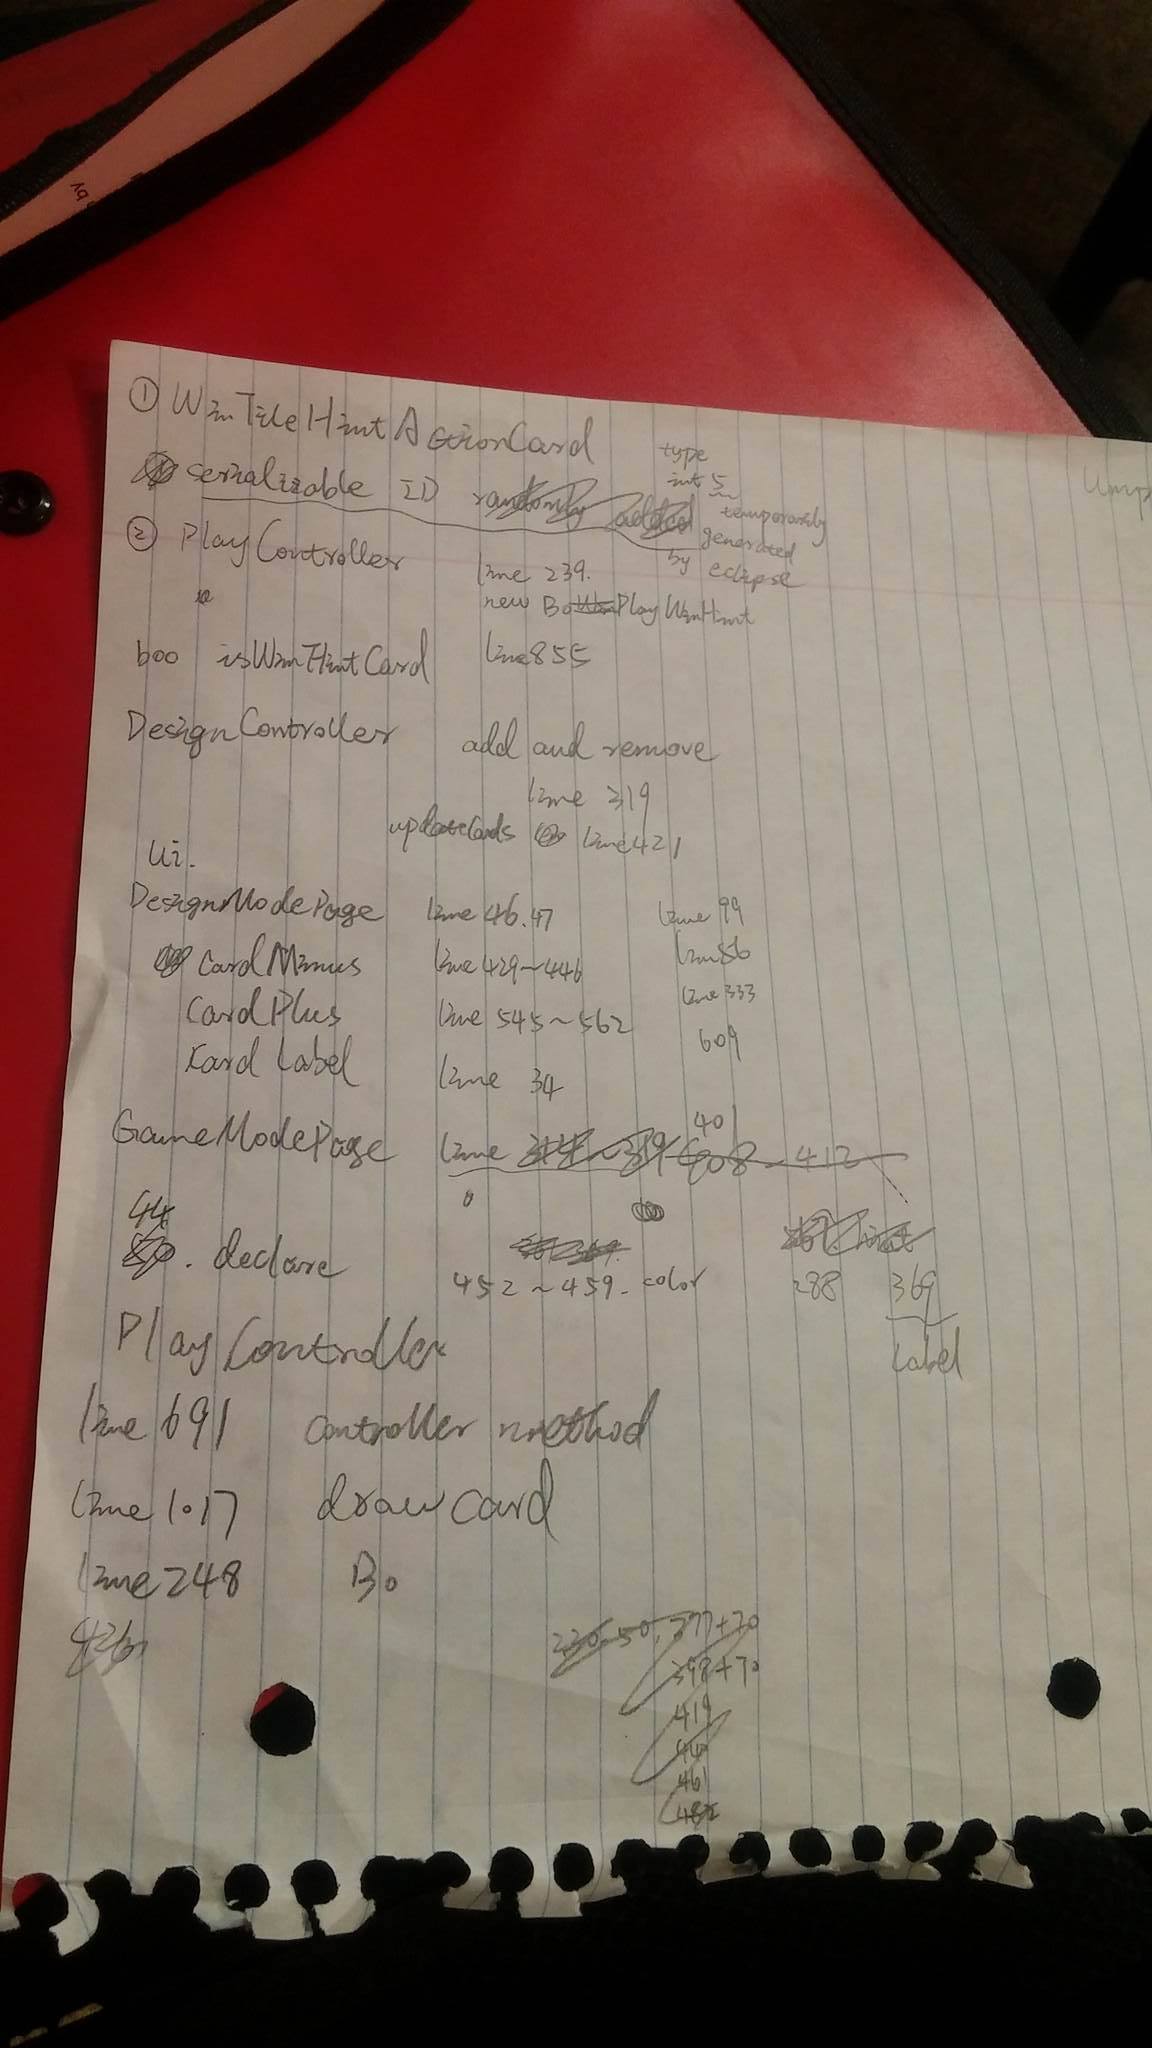 ① WinTileHintActionCard
type
int 5
serializable ID randomly added temporarily
generated
② PlayController by eclipse
line 239.
new BoPlayWinHint
boo isWinHintCard line 855
DesignController add and remove
line 319
updateCards line 421
Ui.
DesignModePage line 46.47 line 99
CardMinus line 429~446 line 86
CardPlus line 545~562 line 333
609
Kard Label line 34
401
GameModePage line 314~319 408~412
44
. declare
452~459. color 288 369
Label
PlayController
line 691 controller method
line 1017 draw card
line 248 Bo
426
230.50, 377+70
398+70
419
440
461
482